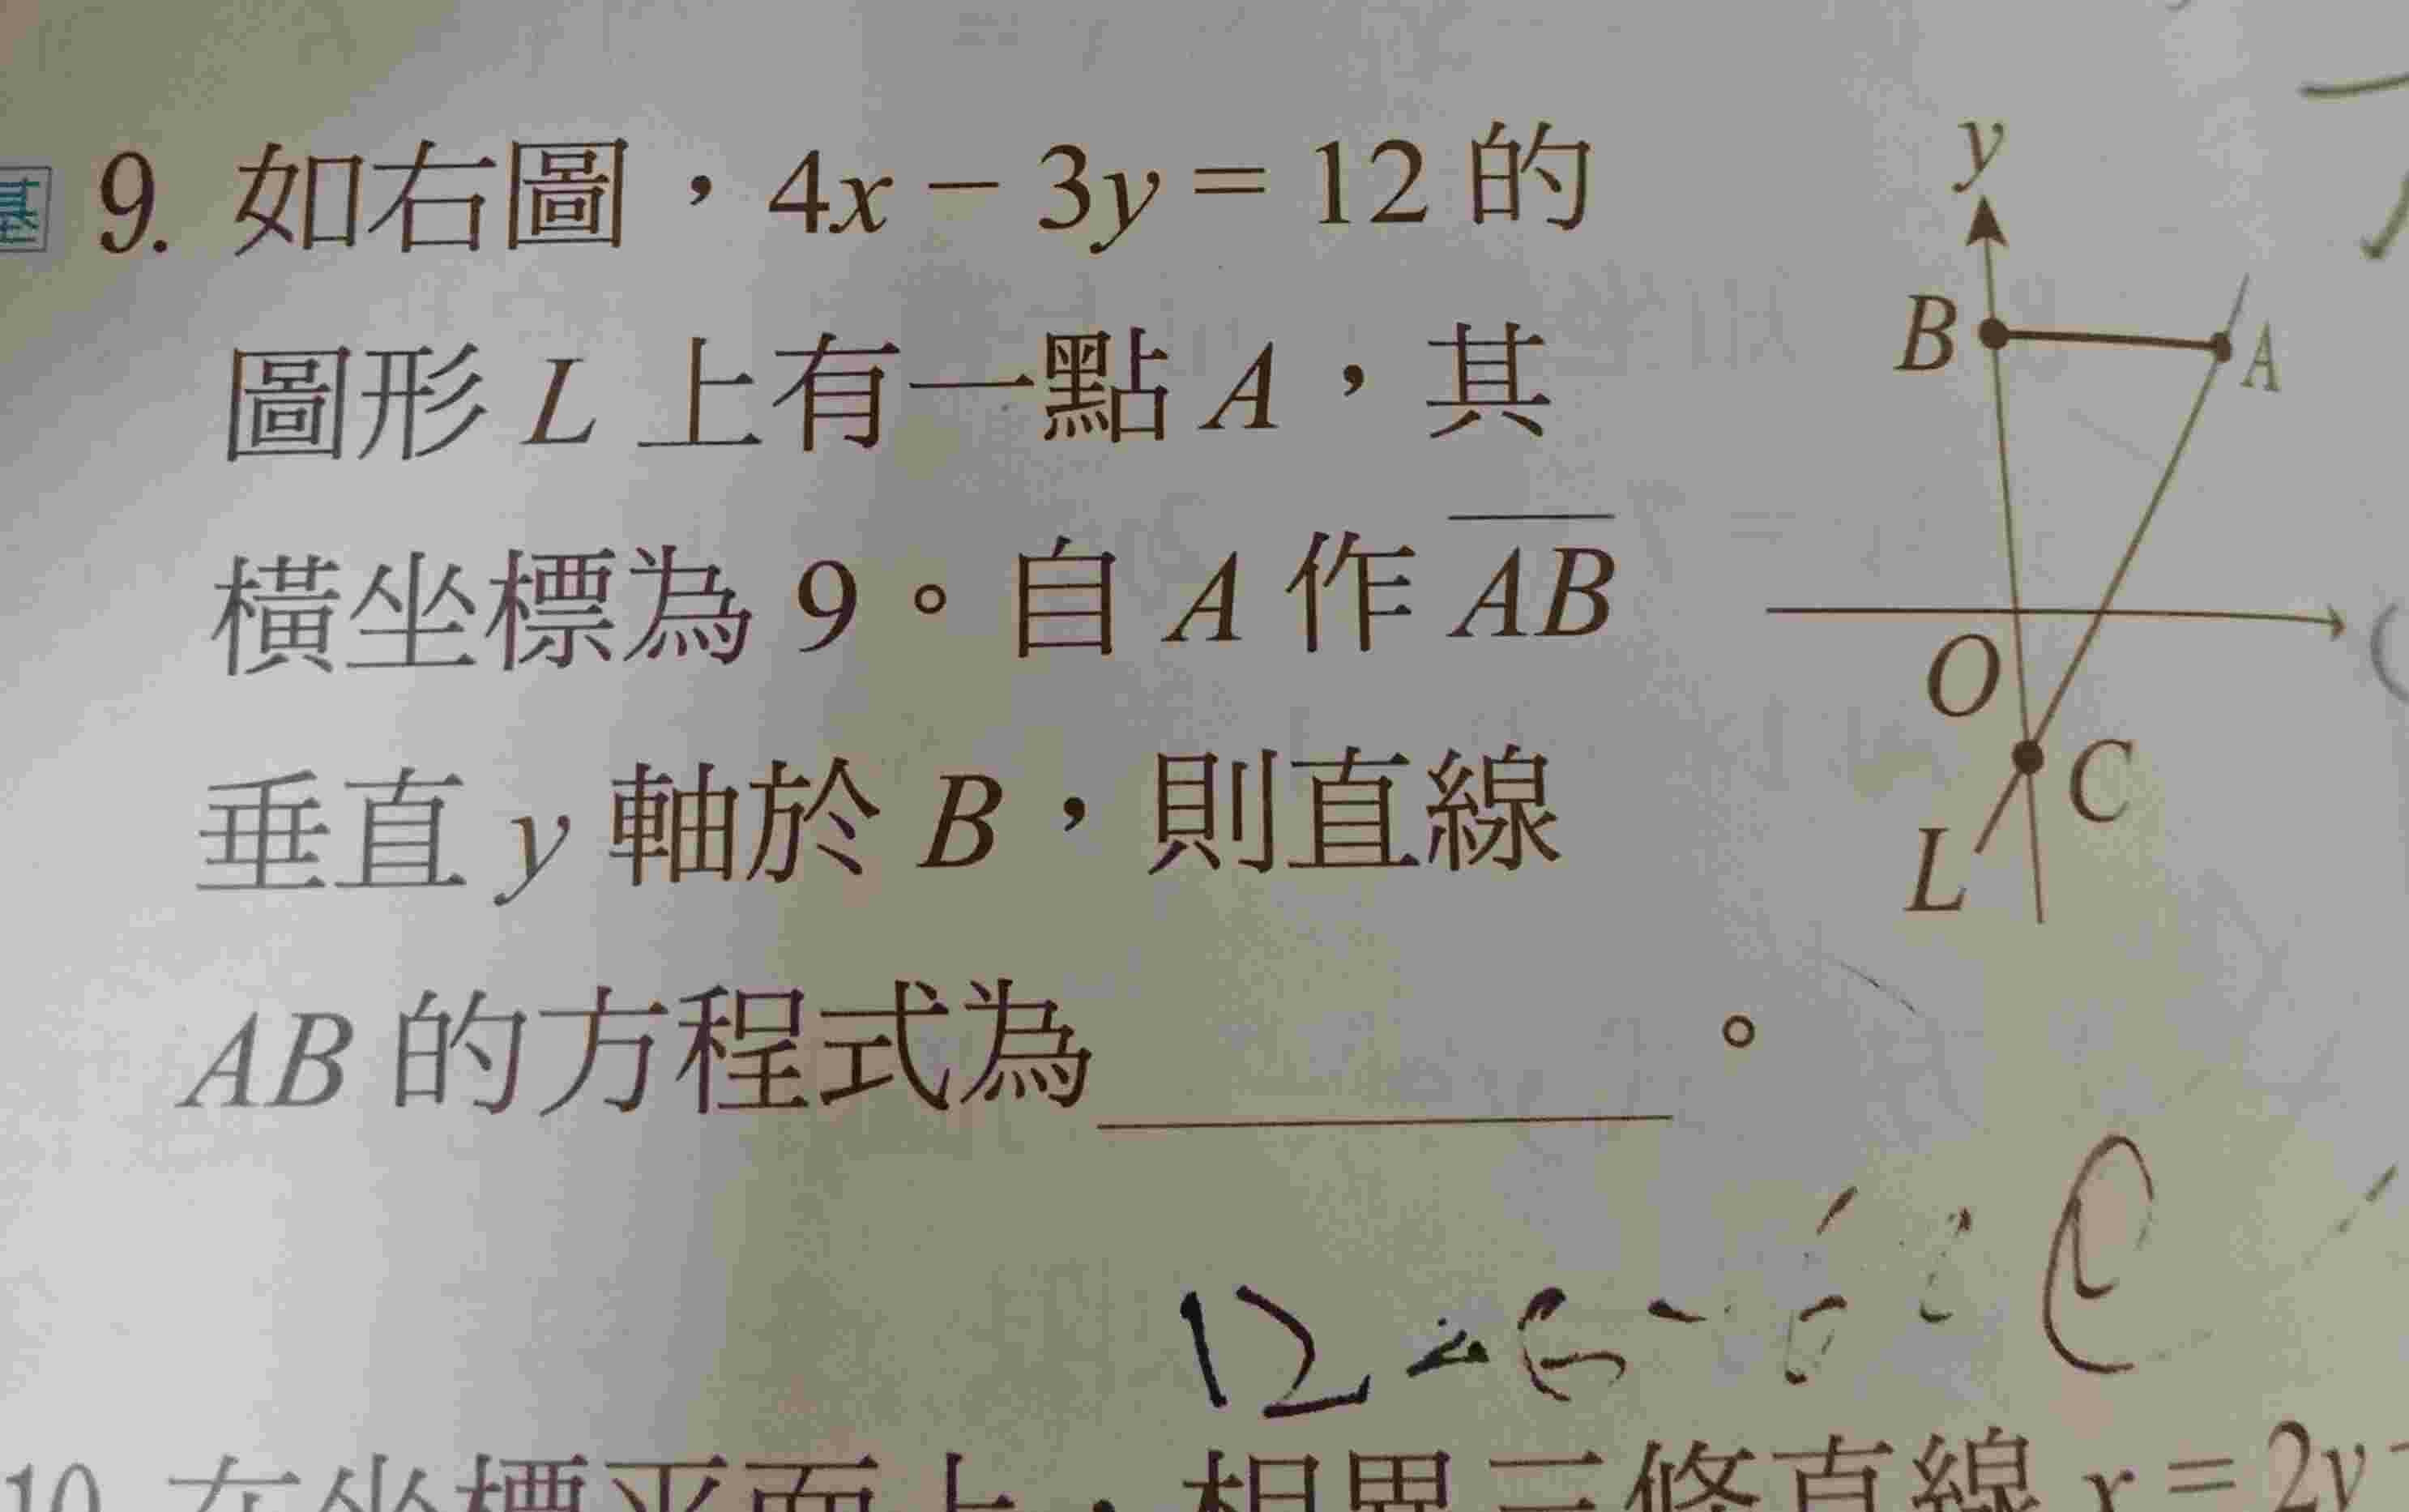 基 9. 如右圖，4x − 3y = 12 的
圖形 L 上有一點 A，其
橫坐標為 9。自 A 作 AB
垂直 y 軸於 B，則直線
AB 的方程式為______。
y
B
A
O
C
L
12
10 在坐標平面上，相異三條直線 x = 2y